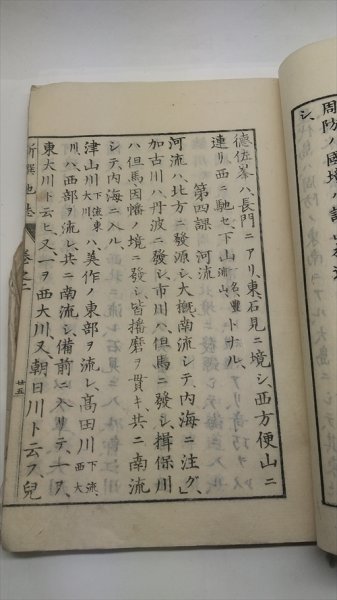 周防ノ國境ハ
シ、
德佐峯ハ、長門ニアリ、東、石見ニ境シ、西方便山ニ
連リ、西ニ馳セ、下山一名豐浦山、トナル、
第四課　河流
河流ハ、北方ニ發源シ、大概、南流シテ、內海ニ注グ、
加古川ハ、丹波ニ發シ、市川ハ、但馬ニ發シ、揖保川
ハ、但馬、因幡ノ境ニ發シ、皆播磨ヲ貫キ、共ニ南流
シテ、內海ニ入ル、
津山川下流、東大川ハ、美作ノ東部ヲ流レ、高田川下流、西大
川ハ、西部ヲ流レ、共ニ南流シ、備前ニ入リテ、一ヲ、
東大川ト云ヒ、又一ヲ西大川、又、朝日川ト云フ、兒
新撰地誌　卷之二　廿五